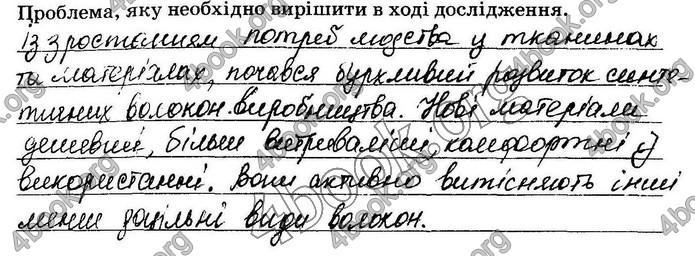 Проблема, яку необхідно вирішити в ході дослідження.
Із зростанням потреб людства у тканинах
та матеріалах, почався бурхливий розвиток синте-
тичних волокон виробництва. Нові матеріали
дешевші, більш витриваліші, комфортні у
використанні. Вони активно витісняють інші
менш доцільні види волокон.
4book.org